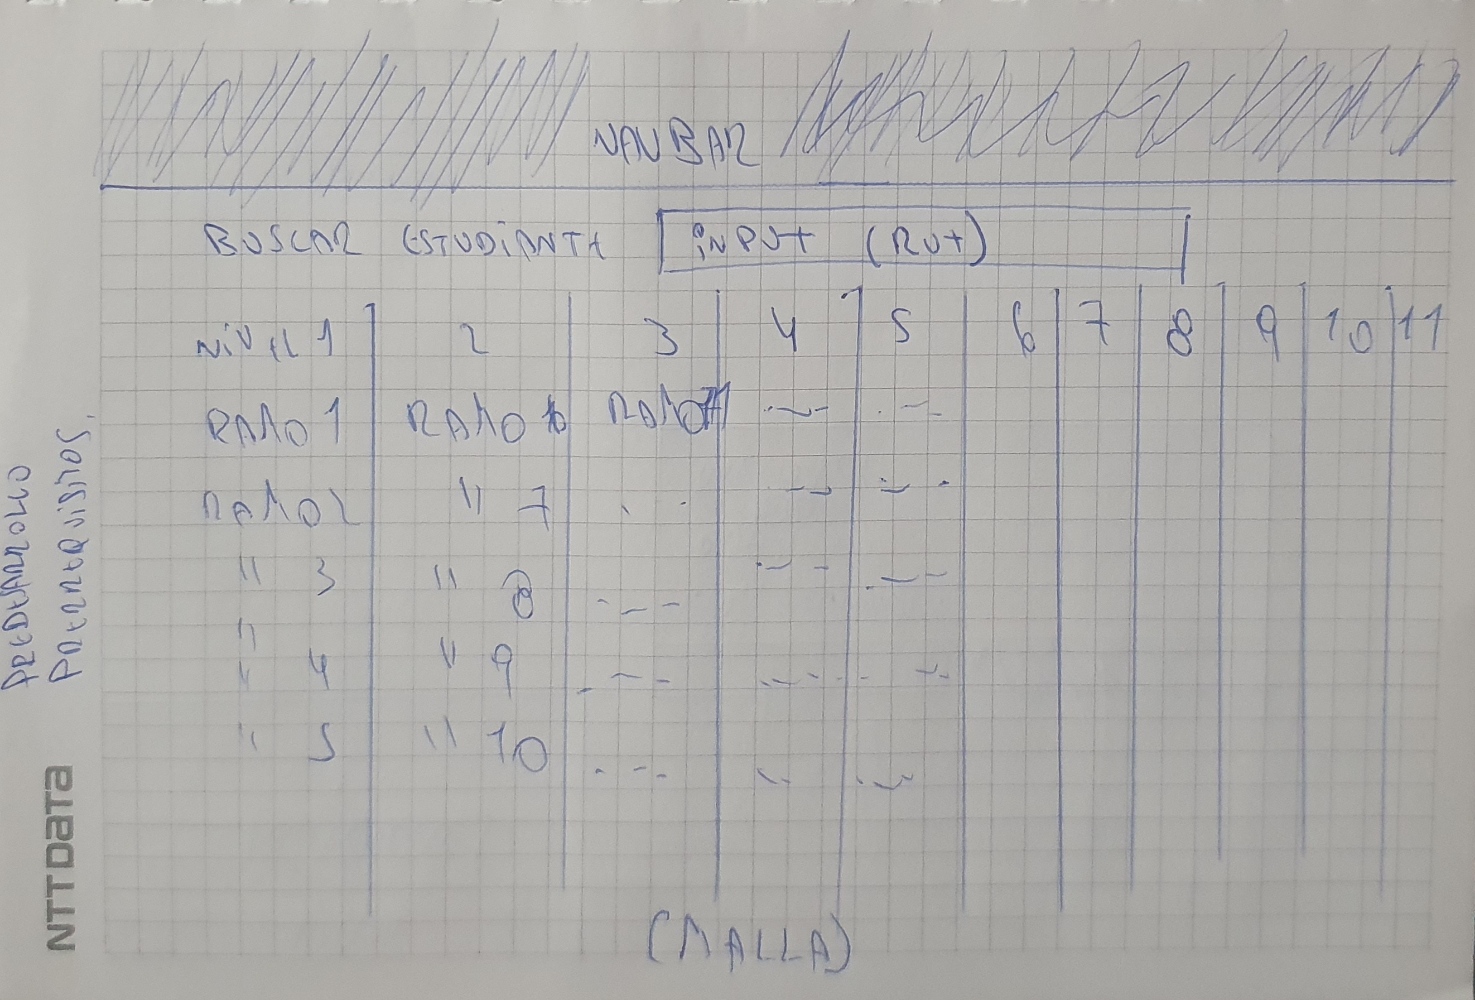 NAVBAR
BUSCAR ESTUDIANTE INPUT (RUT)
NIVEL 1 2 3 4 5 6 7 8 9 10 11
RAMO 1 RAMO 6 RAMO 11
RAMO 2 " 7
" 3 " 8
" 4 " 9
" 5 " 10
(MALLA)
PREREQUISITOS,
NTT DATA